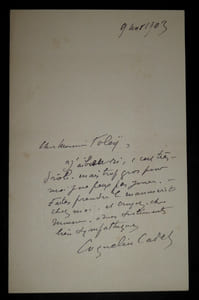 9 nov 1903
Cher Monsieur Foley,
J'ai lu, c'est très
joli. mais trop gros pour
moi, je ne peux pas jouer. -
Faites prendre le manuscrit
chez moi. et croyez, cher
à mes sentiments
bien sympathiques
Coquelin Cadet